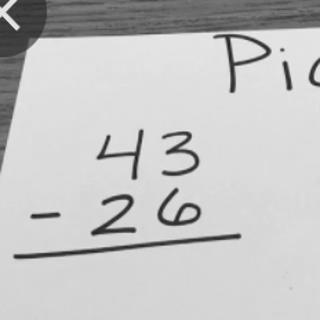 Pi
43
- 26